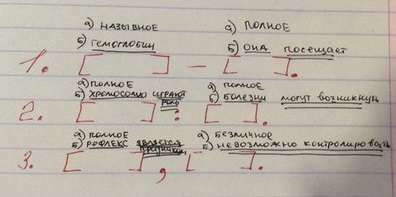 а) НАЗЫВНОЕ а) ПОЛНОЕ
б) ГЕМОГЛОБИН б) ОНА ПОСЕЩАЕТ
1. [ ] — [ ].
а) ПОЛНОЕ а) ПОЛНОЕ
б) ХРОМОСОМЫ ИГРАЮТ РОЛЬ б) БОЛЕЗНИ МОГУТ ВОЗНИКНУТЬ
2. [ ] : [ ].
а) ПОЛНОЕ а) БЕЗЛИЧНОЕ
б) РЕФЛЕКС ЯВЛЯЕТСЯ б) НЕВОЗМОЖНО КОНТРОЛИРОВАТЬ
3. [ ] , [ ].